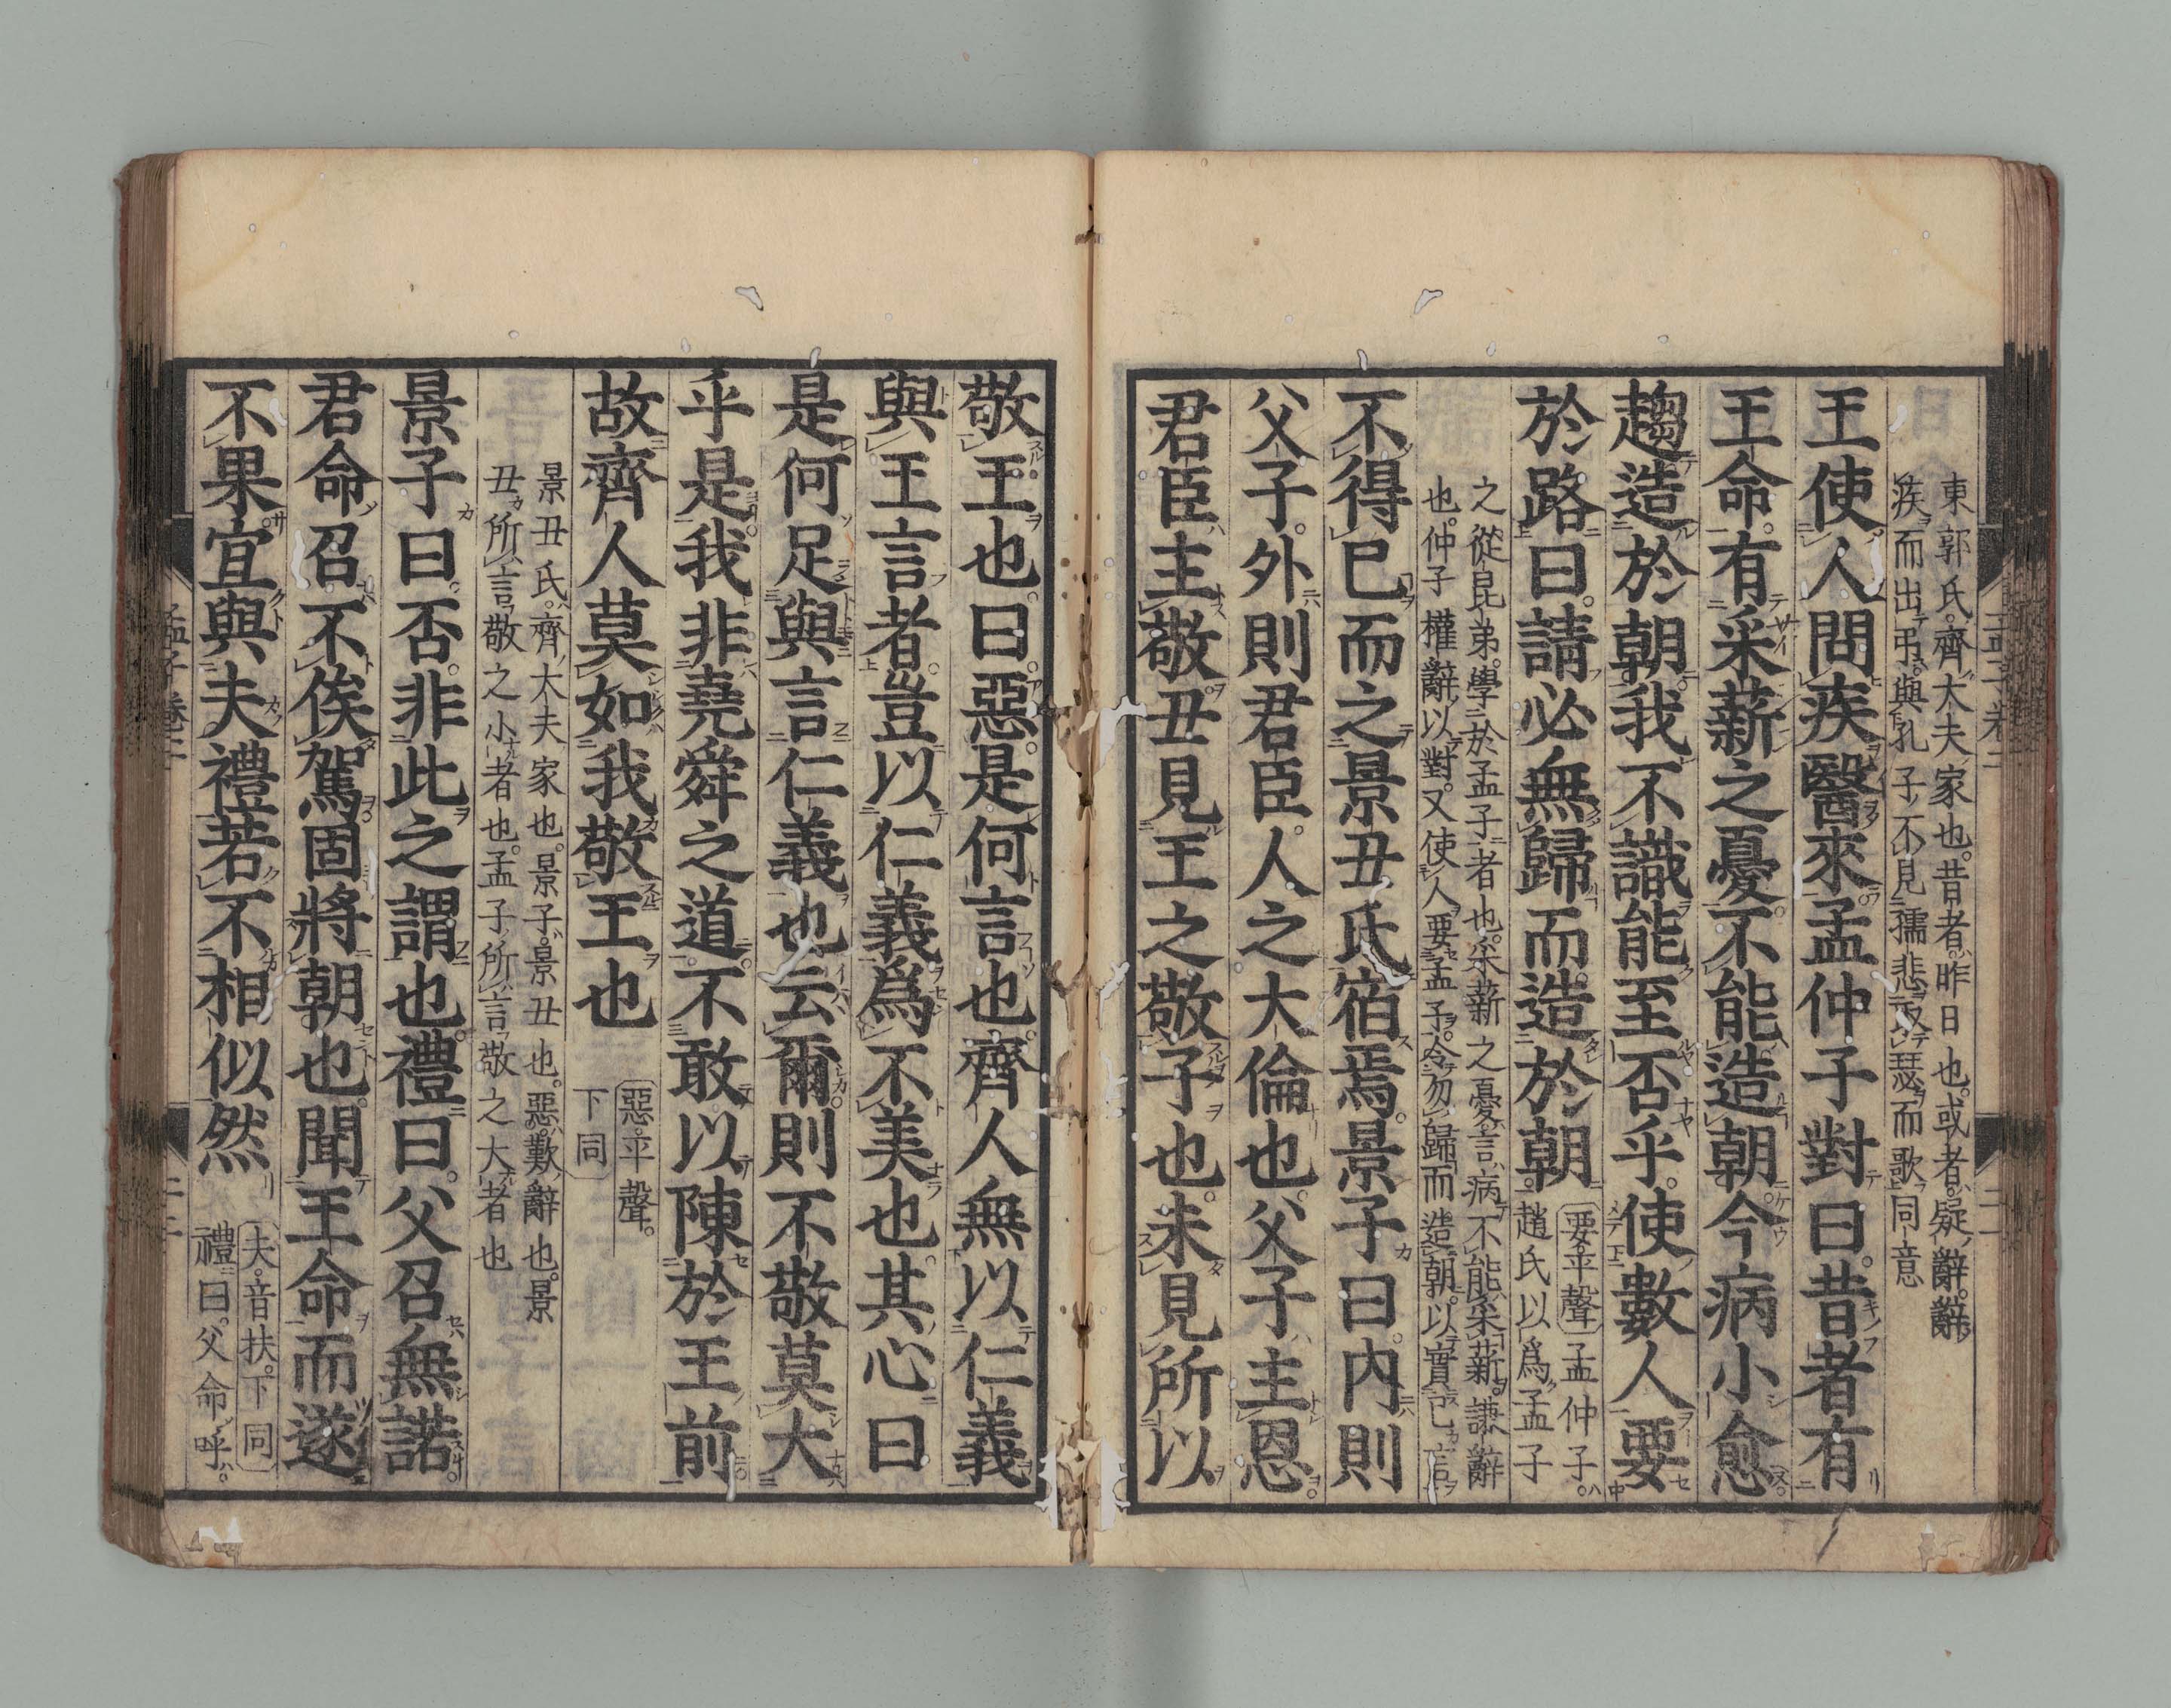 東郭氏齊大夫家也昔者昨日也或者疑辭辭
疾而出弔與孔子不見孺悲取瑟而歌同意
王使人問疾醫來孟仲子對曰昔者有
王命有采薪之憂不能造朝今病小愈
趨造於朝我不識能至否乎使數人要
於路曰請必無歸而造於朝
要平聲孟仲子
趙氏以爲孟子
之從昆弟學於孟子者也采薪之憂言病不能采薪謙辭
也仲子權辭以對又使人要孟子令勿歸而造朝以實己言
不得已而之景丑氏宿焉景子曰內則
父子外則君臣人之大倫也父子主恩
君臣主敬丑見王之敬子也未見所以
敬王也曰惡是何言也齊人無以仁義
與王言者豈以仁義爲不美也其心曰
是何足與言仁義也云爾則不敬莫大
乎是我非堯舜之道不敢以陳於王前
故齊人莫如我敬王也
惡平聲
下同
景丑氏齊大夫家也景子景丑也惡歎辭也景
丑所言敬之小者也孟子所言敬之大者也
景子曰否非此之謂也禮曰父召無諾
君命召不俟駕固將朝也聞王命而遂
不果宜與夫禮若不相似然
夫音扶下同
禮曰父命呼